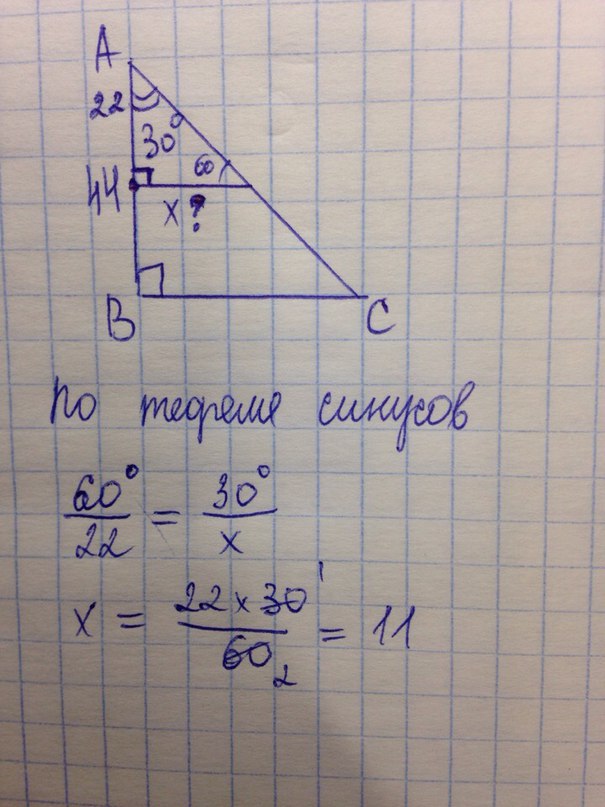 A
22
30°
60
44
x ?
B
C
По теореме синусов
60°/22 = 30°/x
x = 22 x 30 1/60 2 = 11